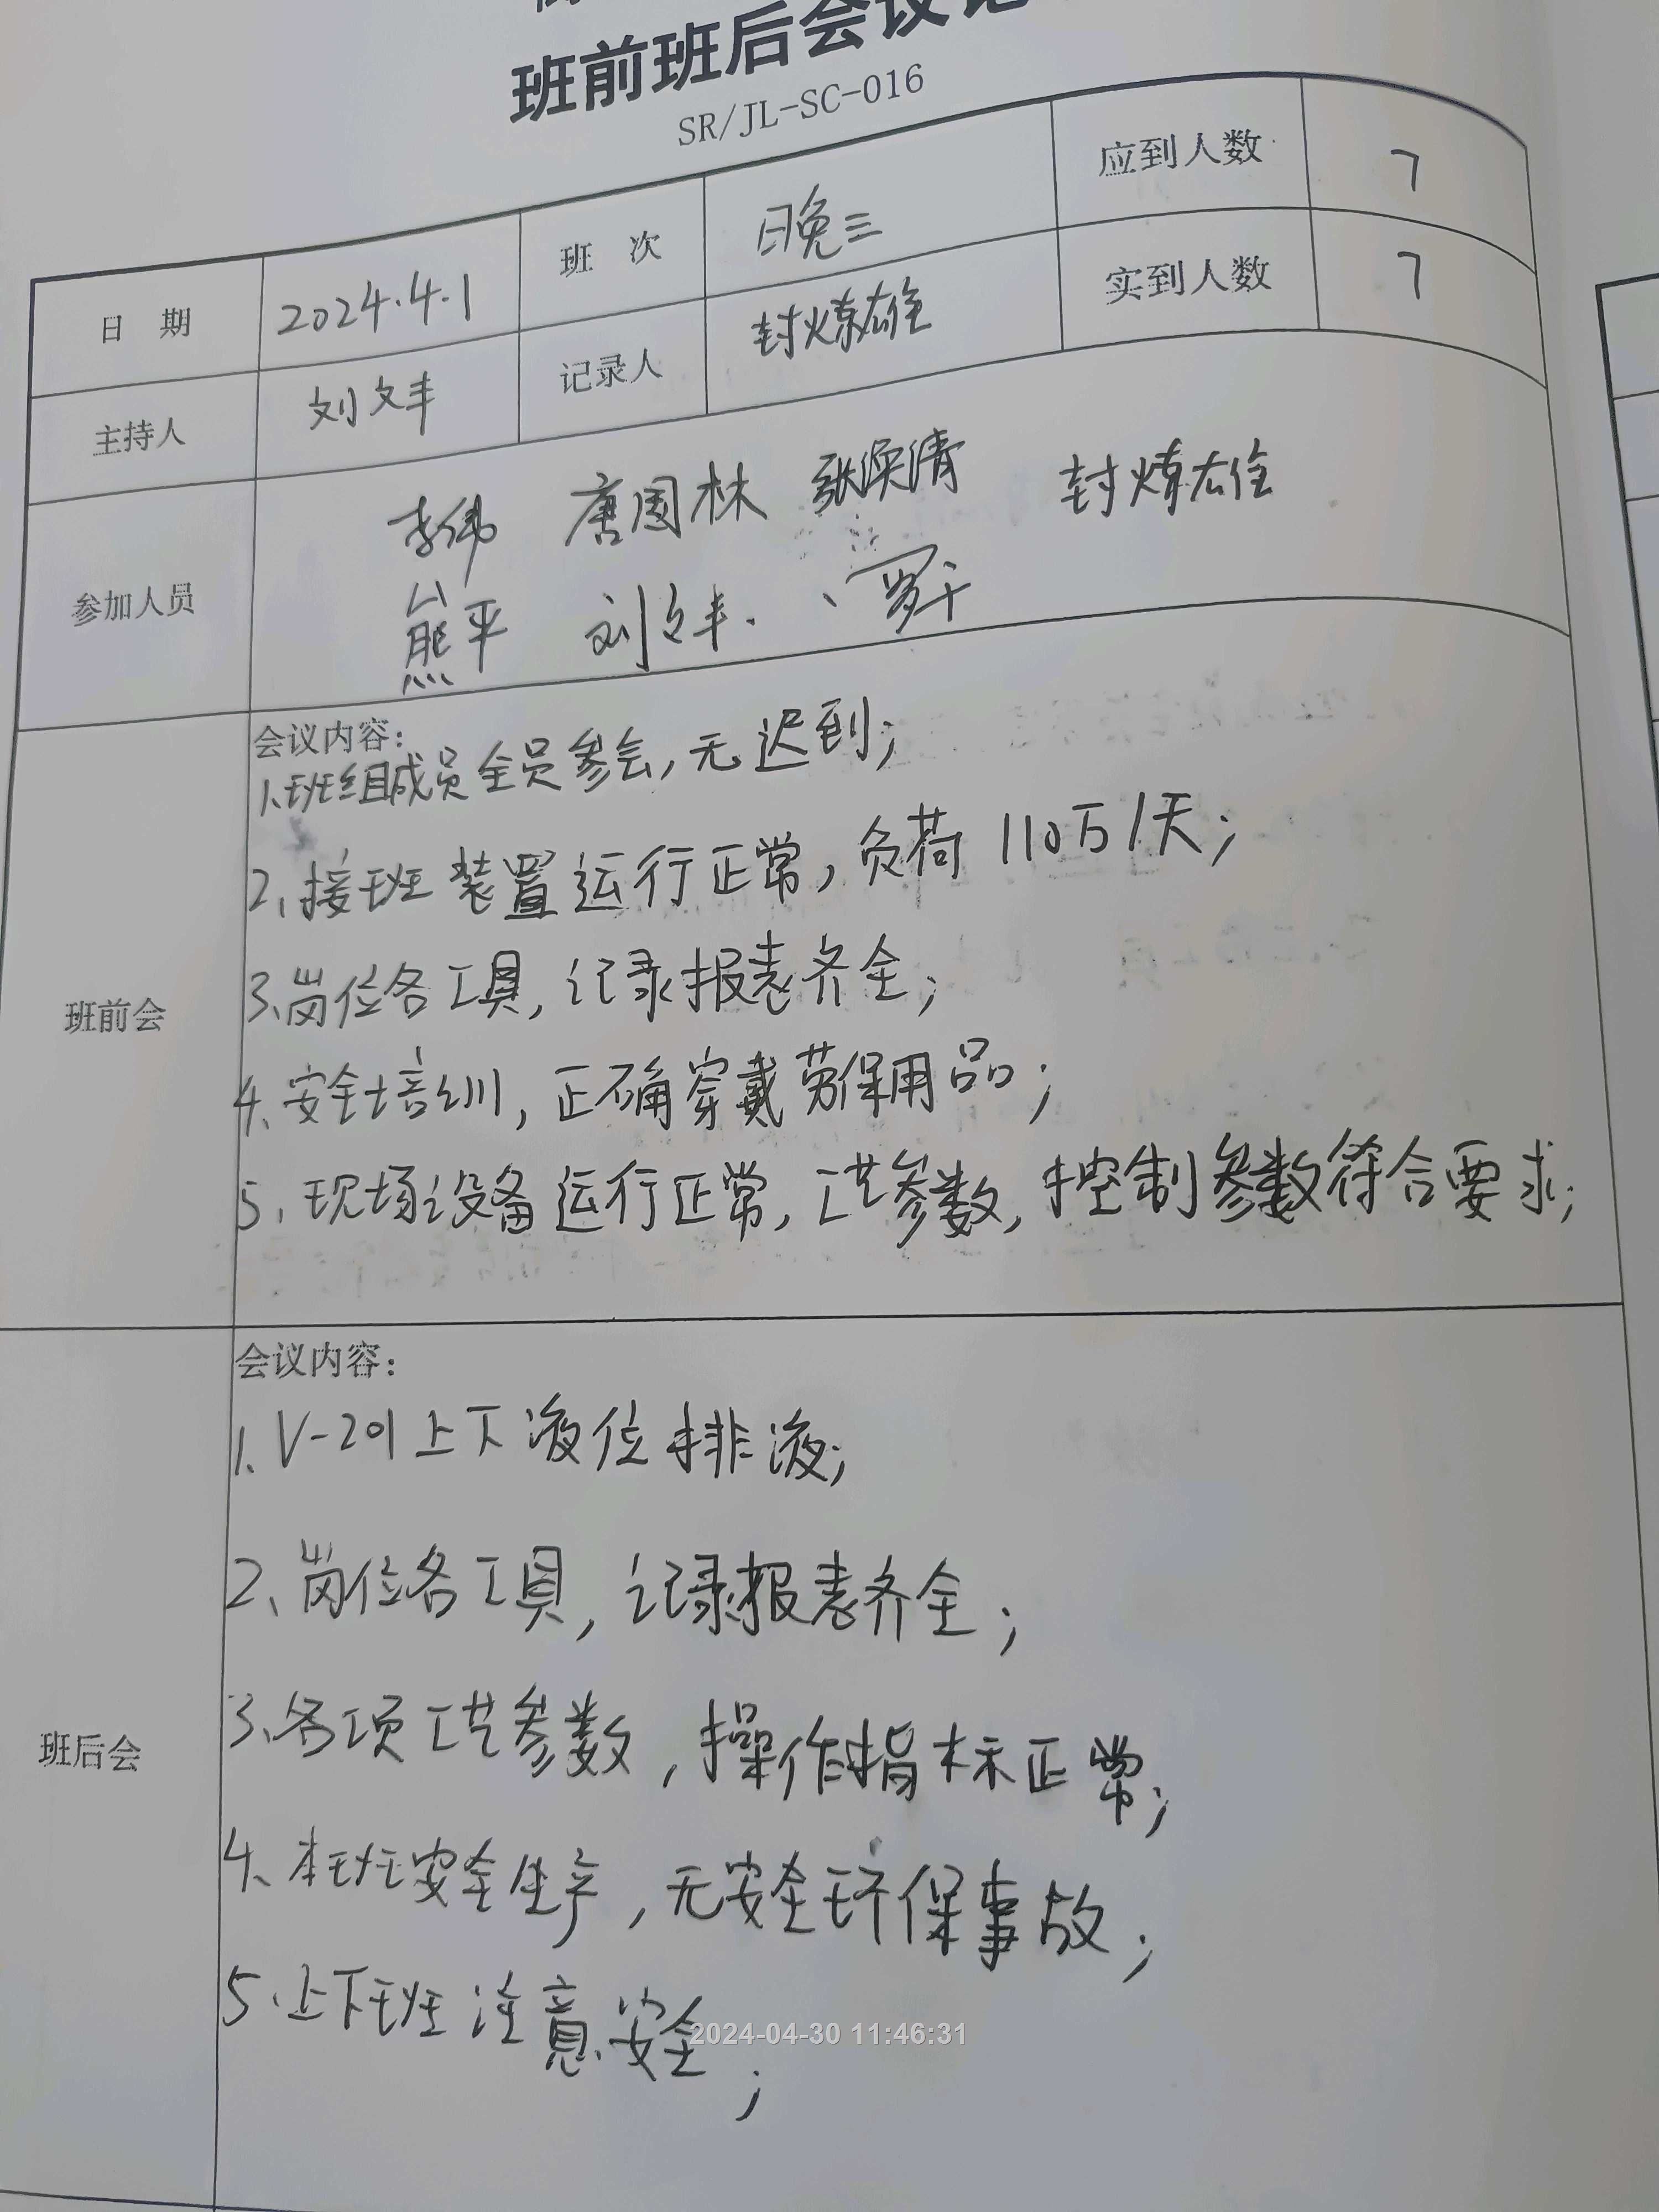 班前班后会议记
SR/JL-SC-016
日 期 2024.4.1 班 次 日晚三 应到人数 7
主持人 刘文丰 记录人 封 雄 实到人数 7
参加人员 李伟 唐国林 张 清 封 雄
熊平 刘文丰. 、罗千
班前会
会议内容:
1.班组成员全员参会,无迟到;
2、接班装置运行正常,负荷110万/天;
3、岗位各工具,记录报表齐全;
4.安全培训,正确穿戴劳保用品;
5、现场设备运行正常,工艺参数,控制参数符合要求;
班后会
会议内容:
1.V-201上下液位排液;
2、岗位各工具,记录报表齐全;
3、各项工艺参数,操作指标正常;
4、本班安全生产,无安全环保事故;
5.上下班注意安全;
2024-04-30 11:46:31